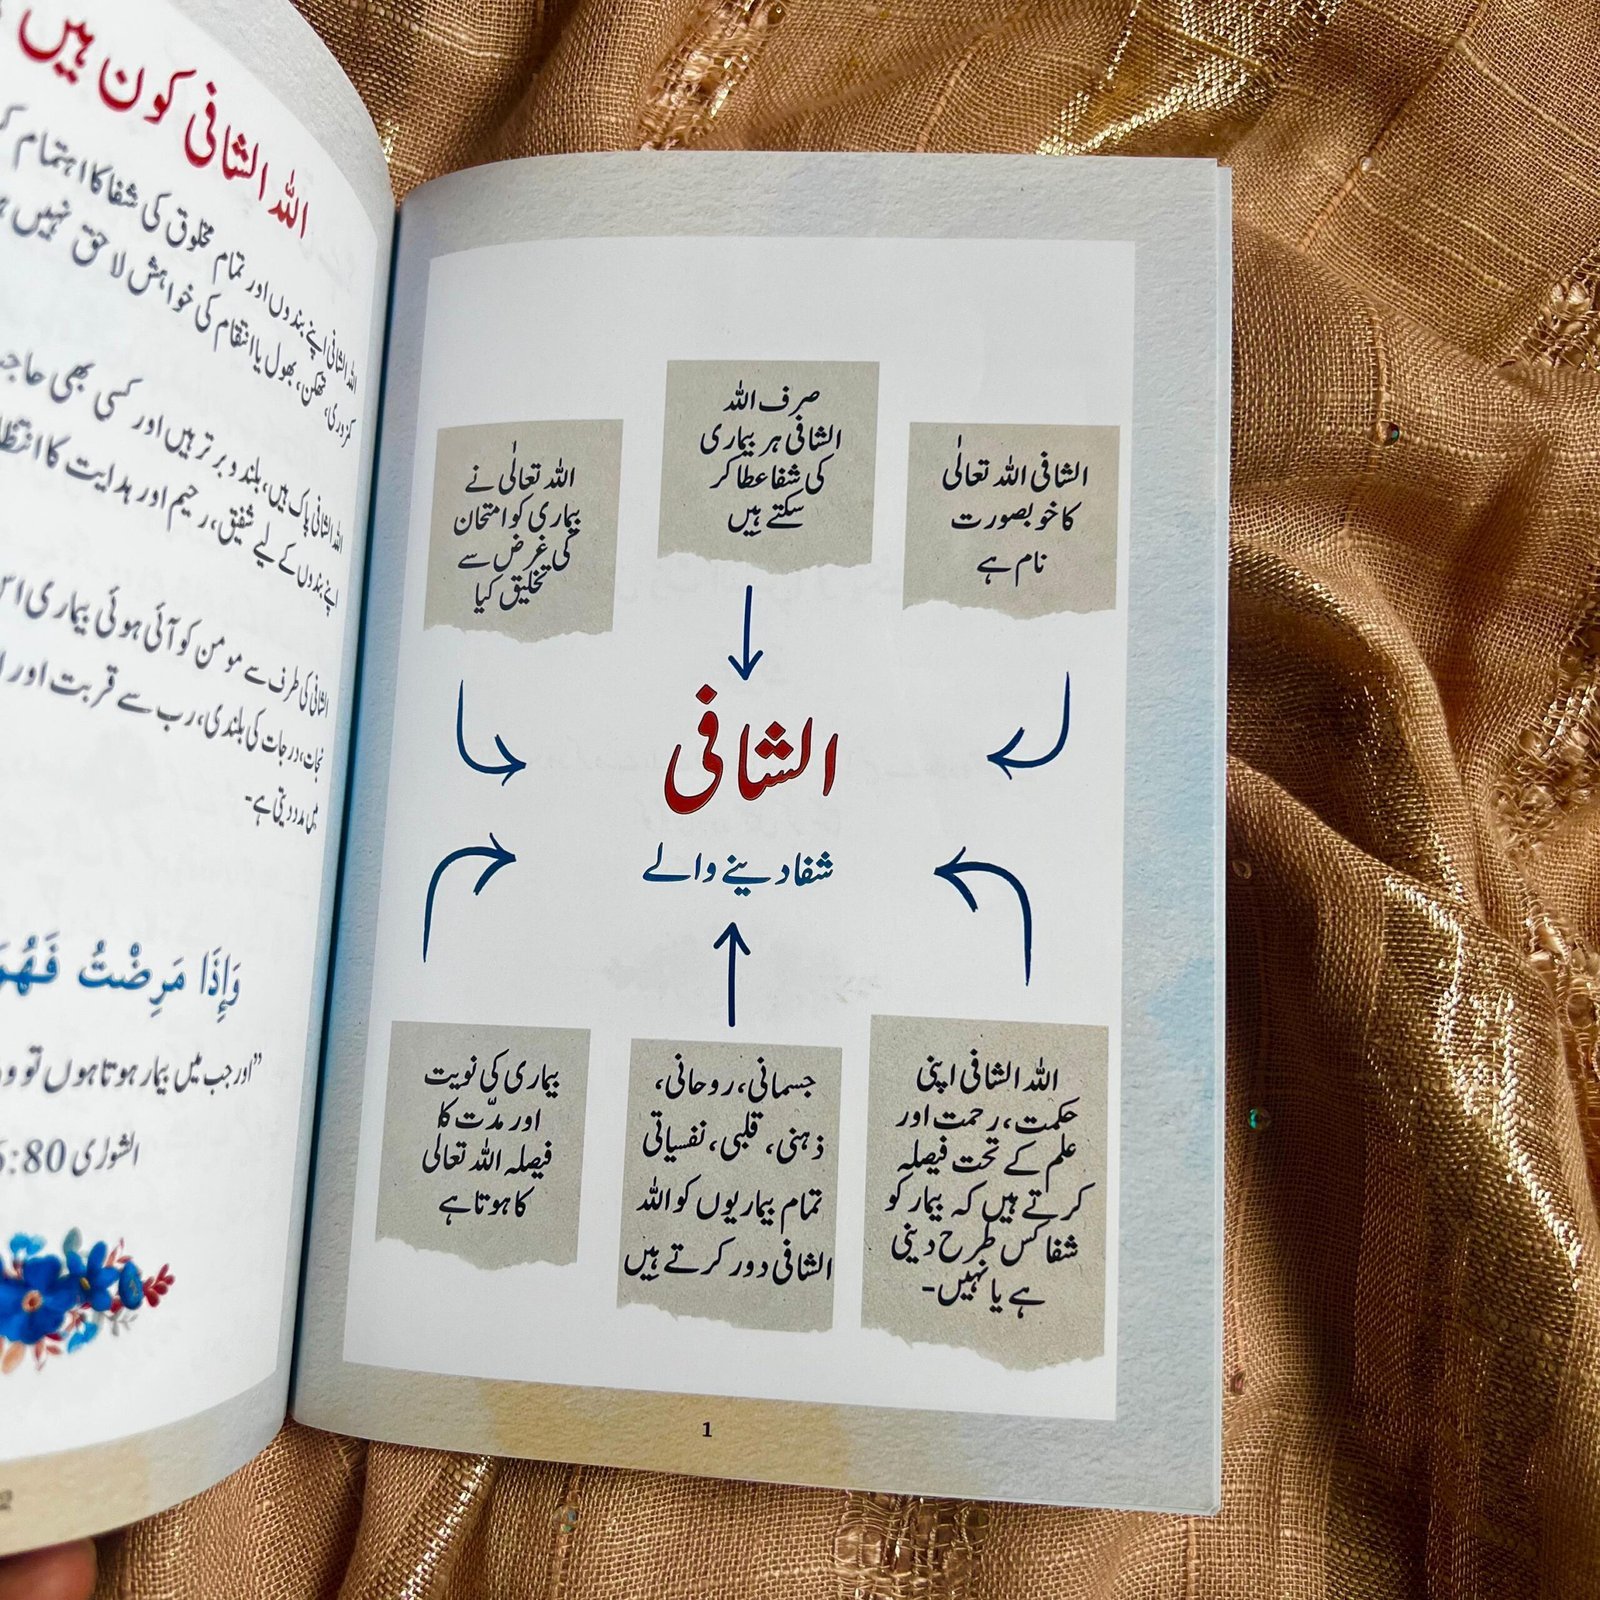 الشافی اللہ تعالٰی
کا خوبصورت
نام ہے
صرف اللہ
الشافی ہر بیماری
کی شفا عطا کر
سکتے ہیں
اللہ تعالٰی نے
بیماری کو امتحان
کی غرض سے
تخلیق کیا
الشافی
شفا دینے والے
اللہ الشافی اپنی
حکمت، رحمت اور
علم کے تحت فیصلہ
کرتے ہیں کہ بیمار کو
شفا کس طرح دینی
ہے یا نہیں۔
جسمانی، روحانی،
ذہنی، قلبی، نفسیاتی
تمام بیماریوں کو اللہ
الشافی دور کرتے ہیں
بیماری کی نویت
اور مدّت کا
فیصلہ اللہ تعالٰی
کا ہوتا ہے
1
اللہ الشافی کون ہیں
اللہ الشافی اپنے بندوں اور تمام مخلوق کی شفا کا اہتمام
کمزوری، تھکن، بھول یا انتقام کی خواہش لاحق نہیں
اللہ الشافی پاک ہیں، بلند و برتر ہیں اور کسی بھی
اپنے بندوں کے لیے شفیق، رحیم اور ہدایت کا
الشافی کی طرف سے مومن کو آئی ہوئی بیماری
نجات، درجات کی بلندی، رب سے قربت اور
میں مدد دیتی ہے۔
وَإِذَا مَرِضْتُ
"اور جب میں بیمار ہوتا ہوں تو
الشورٰی :80